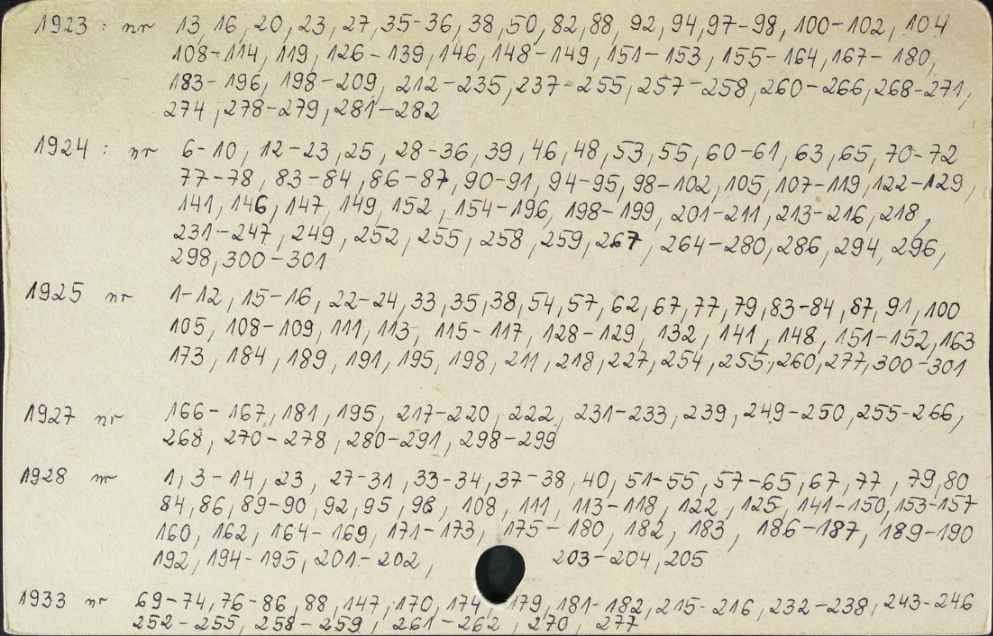 1923 : nr 13, 16, 20, 23, 27, 35-36, 38, 50, 82, 88, 92, 94, 97-98, 100-102, 104
108-114, 119, 126-139, 146, 148-149, 151-153, 155-164, 167-180,
183-196, 198-209, 212-235, 237-255, 257-258, 260-266, 268-271,
274, 278-279, 281-282
1924 : nr 6-10, 12-23, 25, 28-36, 39, 46, 48, 53, 55, 60-61, 63, 65, 70-72
77-78, 83-84, 86-87, 90-91, 94-95, 98-102, 105, 107-119, 122-129,
141, 146, 147, 149, 152, 154-196, 198-199, 201-211, 213-216, 218,
231-247, 249, 252, 255, 258, 259, 267, 264-280, 286, 294, 296,
298, 300-301
1925 nr 1-12, 15-16, 22-24, 33, 35, 38, 54, 57, 62, 67, 77, 79, 83-84, 87, 91, 100
105, 108-109, 111, 113, 115-117, 128-129, 132, 141, 148, 151-152, 163
173, 184, 189, 191, 195, 198, 211, 218, 227, 254, 255, 260, 277, 300-301
1927 nr 166-167, 181, 195, 217-220, 222, 231-233, 239, 249-250, 255-266,
268, 270-278, 280-291, 298-299
1928 nr 1, 3-14, 23, 27-31, 33-34, 37-38, 40, 51-55, 57-65, 67, 77, 79, 80
84, 86, 89-90, 92, 95, 98, 108, 111, 113-118, 122, 125, 141-150, 153-157
160, 162, 164-169, 171-173, 175-180, 182, 183, 186-187, 189-190
192, 194-195, 201-202, 203-204, 205
1933 nr 69-74, 76-86, 88, 147, 170, 174, 179, 181-182, 215-216, 232-238, 243-246
252-255, 258-259, 261-262, 270, 277